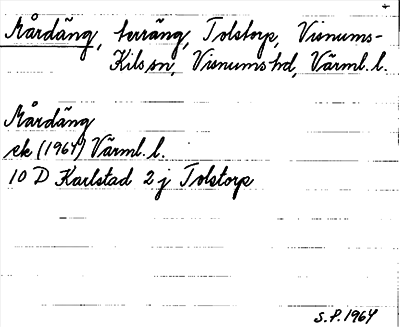 Mårdäng, terräng, Tolstorp, Visnums-
Kils sn, Visnums hd, Värml. l.
Mårdäng
ek (1964) Värml. l.
10 D Karlstad 2 j Tolstorp
S.P. 1964